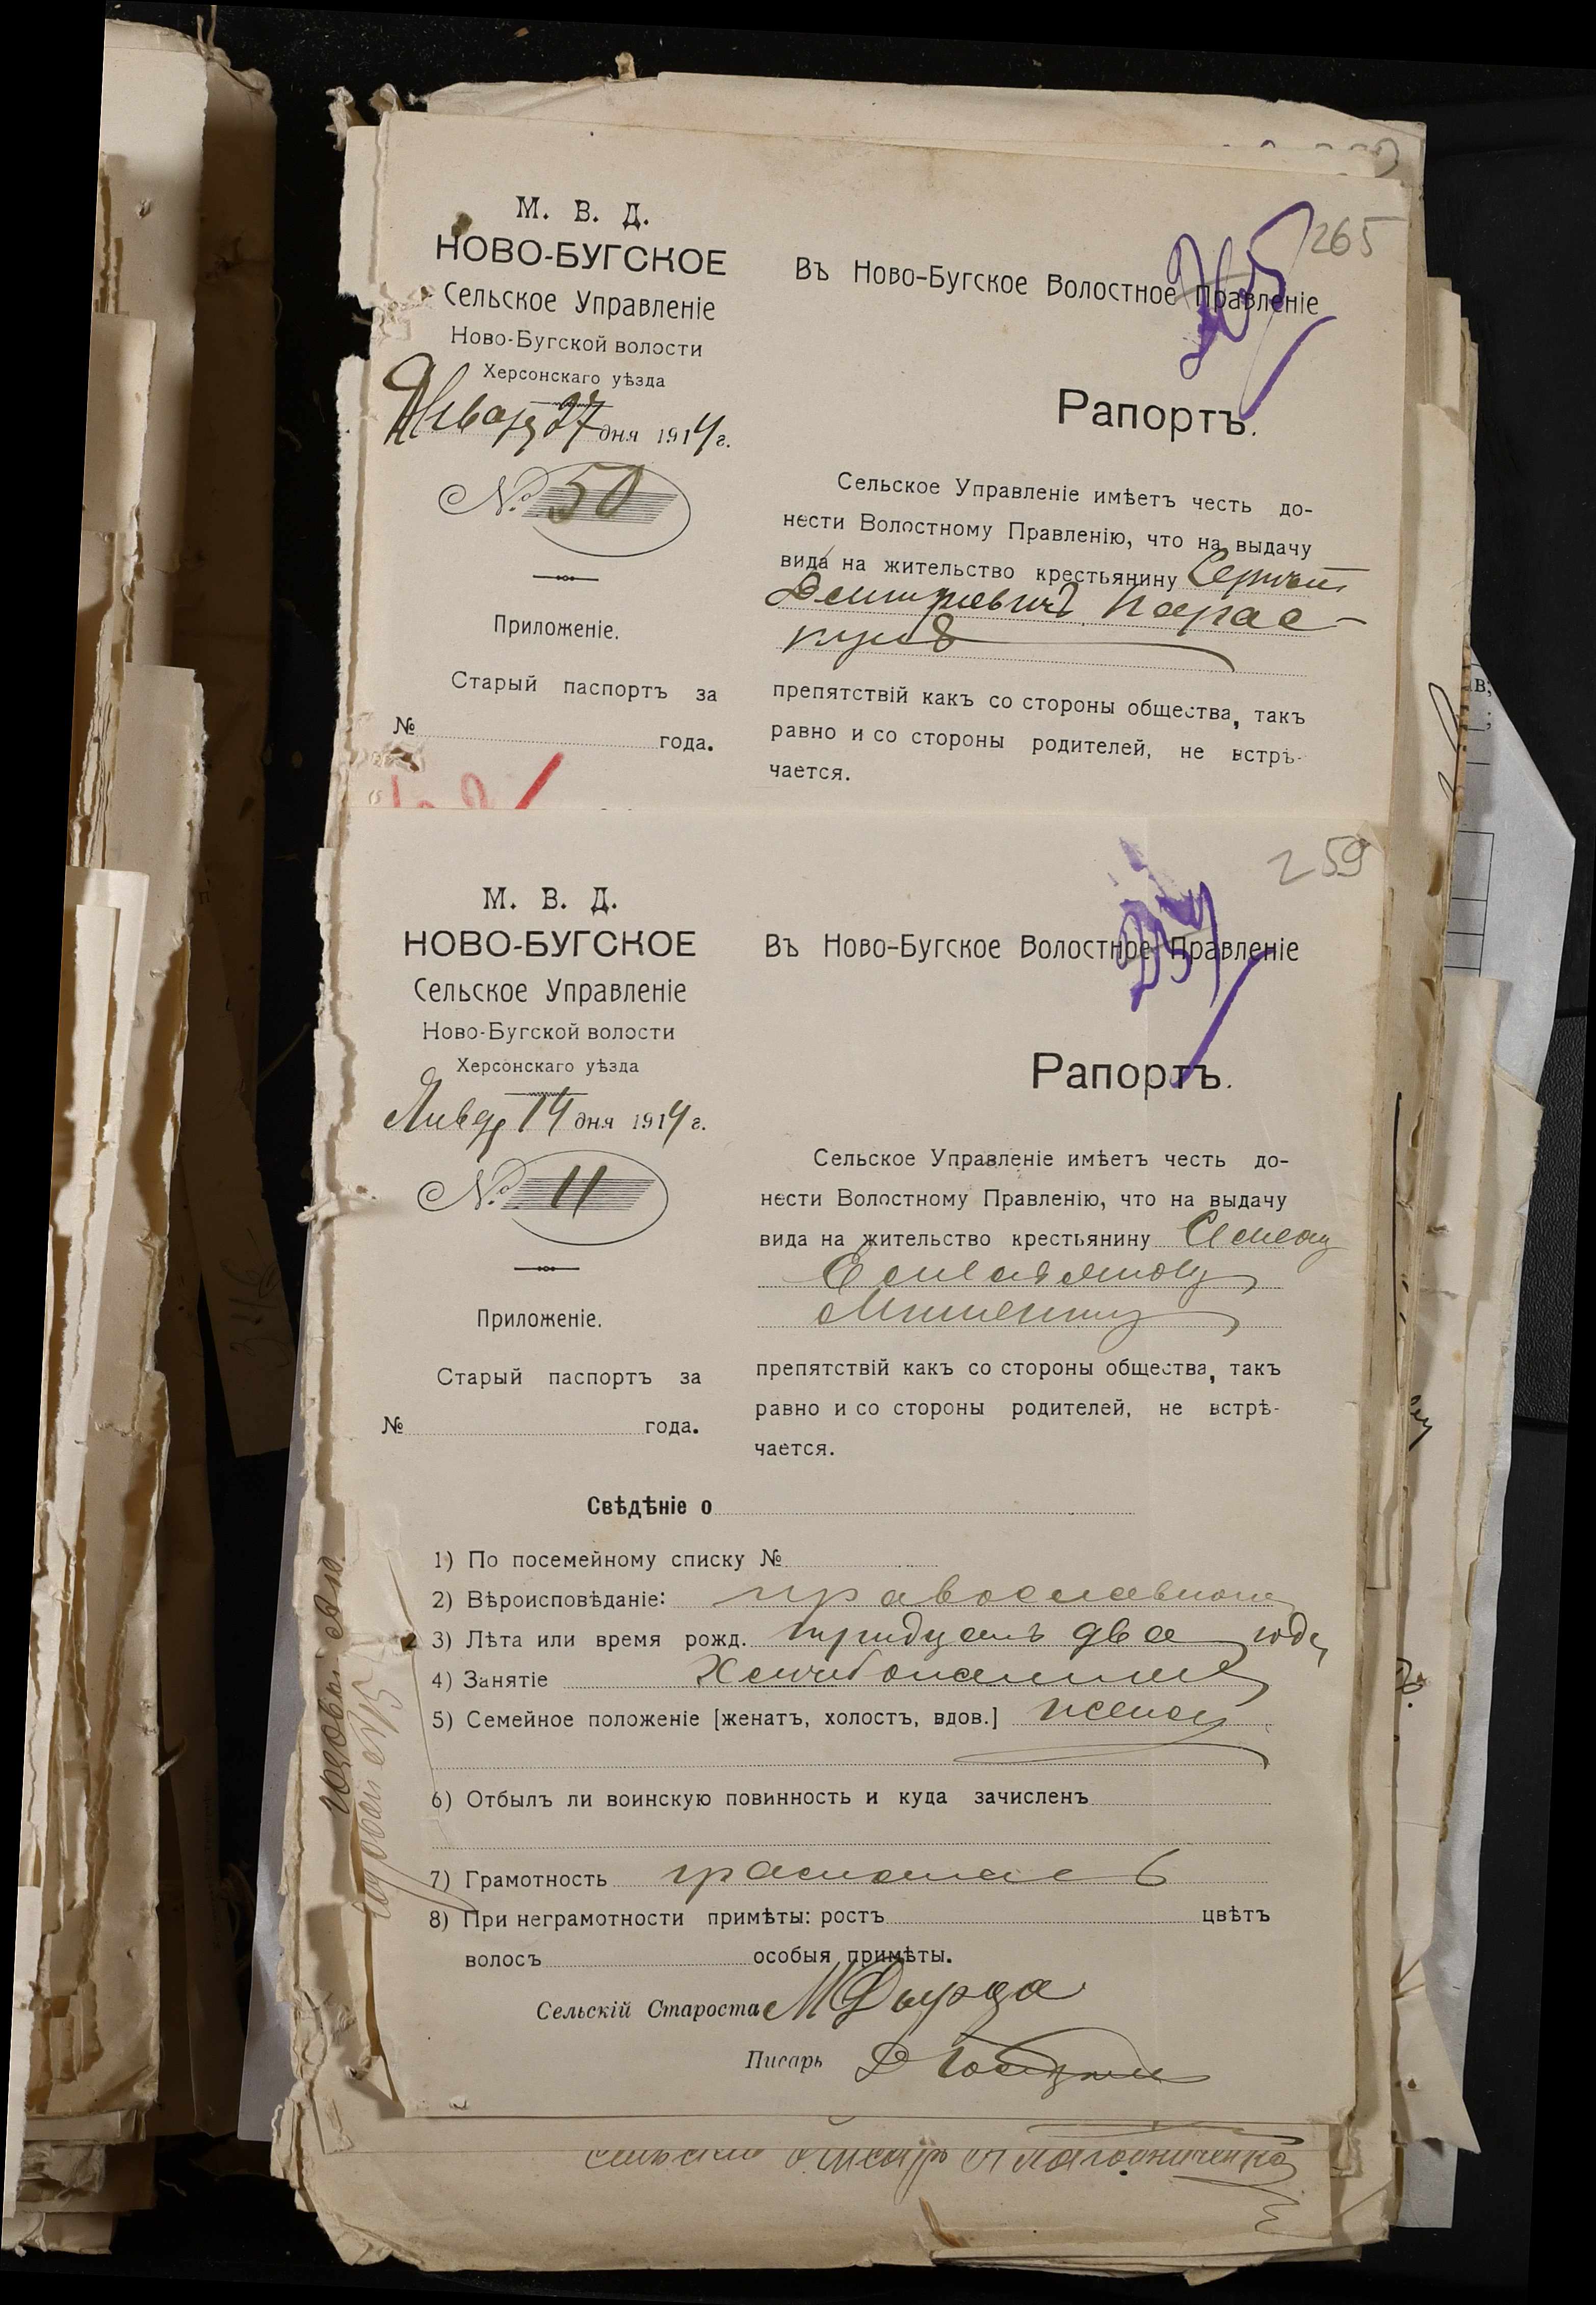 265
М. В. Д.
НОВО-БУГСКОЕ
Сельское Управленіе
Ново-Бугской волости
Херсонскаго уѣзда
Января 27 дня 1914 г.
№ 50
Приложеніе.
Старый паспортъ за
№ года.
Въ Ново-Бугское Волостное Правленіе
Рапортъ.
Сельское Управленіе имѣетъ честь до-
нести Волостному Правленію, что на выдачу
вида на жительство крестьянину Сергѣй
Дмитріевичъ Парас-
препятствій какъ со стороны общества, такъ
равно и со стороны родителей, не встрѣ-
чается.
259
М. В. Д.
НОВО-БУГСКОЕ
Сельское Управленіе
Ново-Бугской волости
Херсонскаго уѣзда
Январ 14 дня 1914 г.
№ 11
Приложеніе.
Старый паспортъ за
№ года.
Въ Ново-Бугское Волостное Правленіе
Рапортъ.
Сельское Управленіе имѣетъ честь до-
нести Волостному Правленію, что на выдачу
вида на жительство крестьянину Семену
Емельянову
препятствій какъ со стороны общества, такъ
равно и со стороны родителей, не встрѣ-
чается.
Свѣдѣніе о
1) По посемейному списку №
2) Вѣроисповѣданіе: православнаго
3) Лѣта или время рожд. тридцать два года
4) Занятіе Хлѣбопашец
5) Семейное положеніе [женатъ, холостъ, вдов.] женат
6) Отбылъ ли воинскую повинность и куда зачисленъ
7) Грамотность грамотный
8) При неграмотности примѣты: ростъ цвѣтъ
волосъ особыя примѣты.
Сельскій Староста М Дырда
Писарь Д